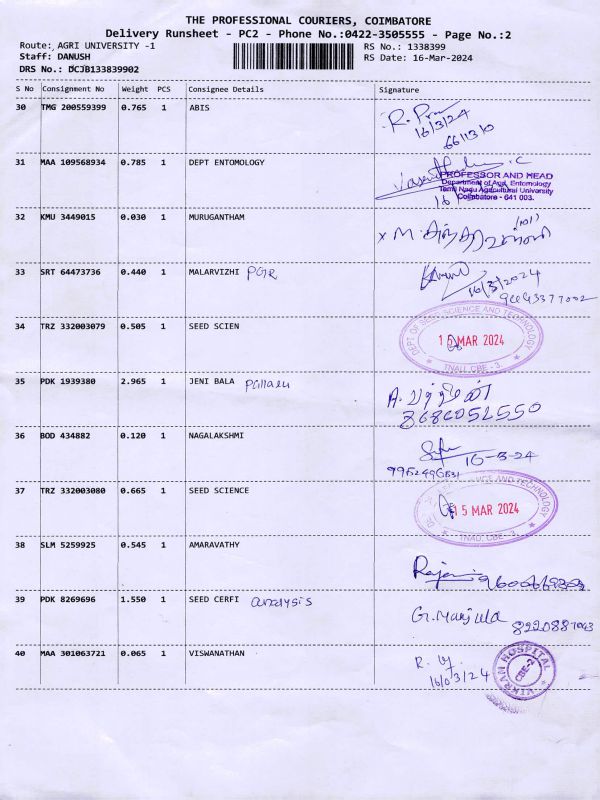 THE PROFESSIONAL COURIERS, COIMBATORE
Delivery Runsheet - PC2 - Phone No.:0422-3505555 - Page No.:2
Route: AGRI UNIVERSITY -1
RS No.: 1338399
Staff: DANUSH
RS Date: 16-Mar-2024
DRS No.: DCJB133839902
S No Consignment No Weight PCS Consignee Details Signature
30 TMG 200559399 0.765 1 ABIS
16/3/24
31 MAA 109568934 0.785 1 DEPT ENTOMOLOGY
PROFESSOR AND HEAD
Department of Agrl. Entomology
Tamil Nadu Agricultural University
Coimbatore - 641 003.
32 KMU 3449015 0.030 1 MURUGANTHAM
33 SRT 64473736 0.440 1 MALARVIZHI PGR
16/3/2024
34 TRZ 332003079 0.505 1 SEED SCIEN
DEPT OF SEED SCIENCE AND TECHNOLOGY
MAR 2024
TNAU, CBE - 3.
35 PDK 1939380 2.965 1 JENI BALA
8686052550
36 BOD 434882 0.120 1 NAGALAKSHMI
16-3-24
37 TRZ 332003080 0.665 1 SEED SCIENCE
SCIENCE AND TECHNOLOGY
15 MAR 2024
TNAU, CBE - 3.
38 SLM 5259925 0.545 1 AMARAVATHY
39 PDK 8269696 1.550 1 SEED CERFI analysis
G. Manjula
40 MAA 301063721 0.065 1 VISWANATHAN
16/03/24
VIKRAM HOSPITAL
CBE-2